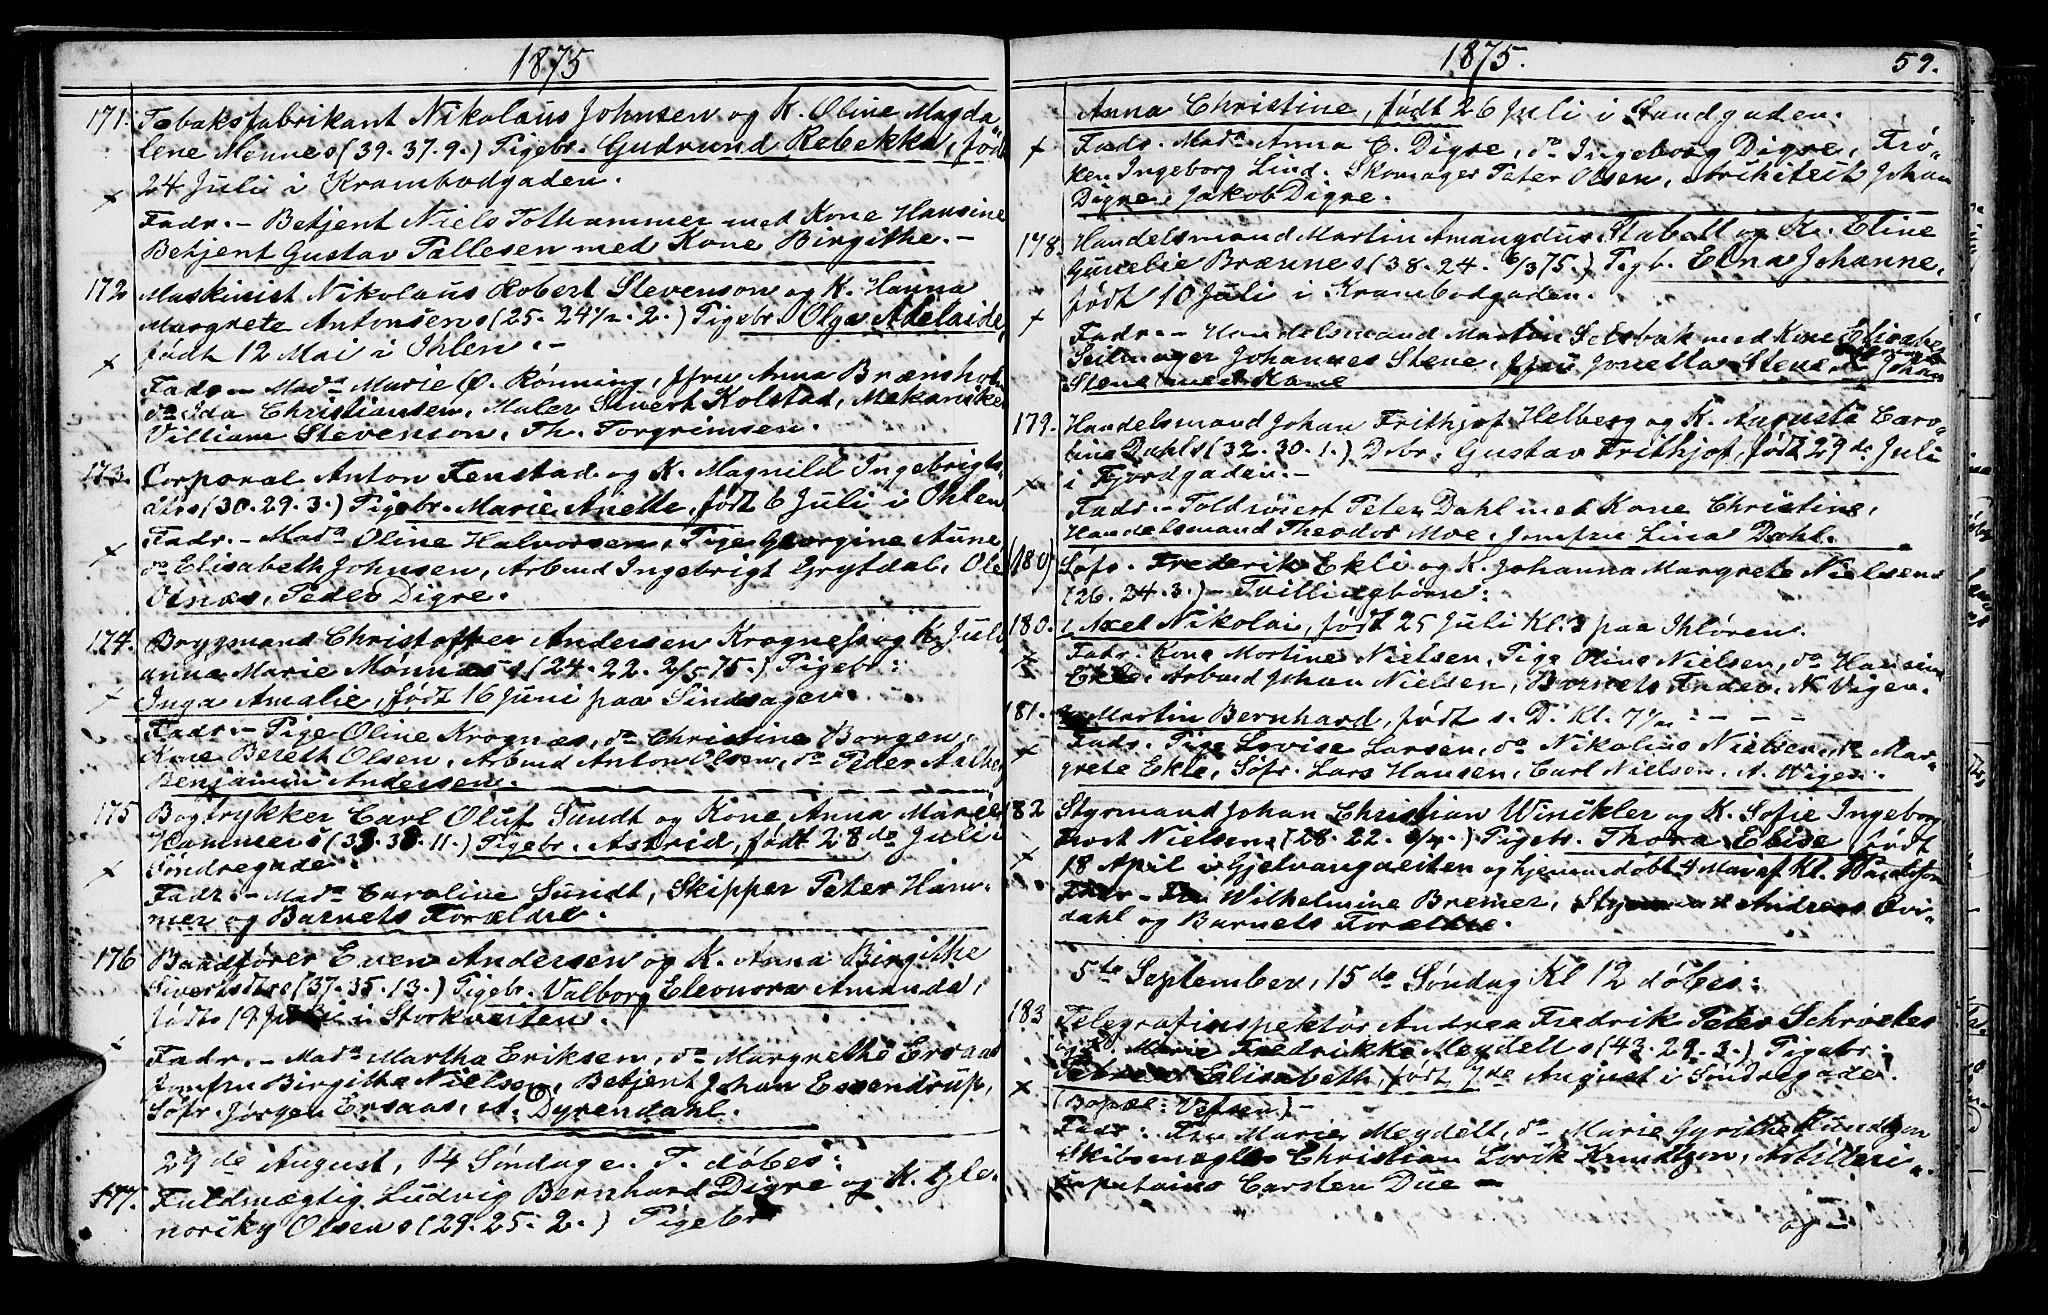 1875
171. Tobaksfabrikant Nikolaus Johnsen og K. Oline Magda
lene Mennes (39. 37. 9.) Pigebr. Gudrund Rebekka, født
24 Juli i Krambodgaden.
Fadr. – Betjent Niels Tothammer med Kone Hansine
Betjent Gustav Pallesen med Kone Birgithe. –
172 Maskinist Nikolaus Robert Stevenson og K. Hanna
Margrete Antonsens (25. 24 1/2. 2.) Pigebr. Olga Adelaide,
født 12 Mai i Ihlen. –
Fadr – Madm Marie Ø. Rønning, Jfru Anna Brænsholm
do Ida Christiansen, Maler Sivert Kolstad, Mekaniker
Villiam Stevenson. Th. Torgrimsen.
173. Corporal Anton Fenstad og K. Magnild Ingebrigts-
dtrs (30. 29. 3.) Pigebr. Marie Anette, født 6 Juli i Ihlen
Fadr. – Madm Oline Halvorsen, Pige Georgine Aune
do Elisabeth Johnsen, Arbmd Ingebrigt Grytdal, Ole
Olnæs, Peder Digre.
174. Brygmand Christoffer Andersen Krogness og K. Juli
anna Marie Mønnæs (24. 22. 2/5 75.) Pigebr:
Inga Amalie, født 16 Juni paa Sindsager.
Fadr. – Pige Oline Krognæs, do Christine Borgen,
Kone Bereth Olsen, Arbmd Anton Olsen, do Peder
Benjamin Andersen.
175 Bogtrykker Carl Oluf Sundt og Kone Anna Marie
Hammers (33. 38. 11.) Pigebr. Astrid, født 28de Juli i
Søndregade.
Fadr. – Madm Caroline Sundt, Skipper Peter Ham-
mer og Barnets Forældre.
176 Baadfører Even Andersen og K. Anna Birgithe
Sivertsdtrs (37. 35. 13.) Pigebr. Valborg Eleonora Amanda,
født 19 Juli i Storkvarten.
Fadr. – Madm Martha Eriksen, do Margrethe Ersaas
Jomfru Birgitha Nielsen, Betjent Johan Essendrup,
Søfr. Jørgen Ersaas, A. Dyrendahl.
29de August, 14 Søndag e. T. døbes:
177. Fuldmægtig Ludvig Bernhard Digre og K. Ele-
noriky Olsens (29. 25. 2.) Pigebr
1875. 59.
Anna Christine, født 26 Juli i Sandgaden.
Fadr. Madm Anna C. Digre, do Ingeborg Digre, Frø-
ken Ingeborg Lind. Skomager Peter Olsen, Arkitekt Johan
Digre, Jakob Digre.
178. Handelsmand Martin Amangdus Stabell og K. Eline
Gunelie Brænnes (38. 24. 6/3 75.) Pigb. Elna Johanne,
født 10 Juli i Krambodgaden.
Fadr. – Handelsmand Martin Selsbak med Kone
Seilmager Johannes Stene, Jfru Jonetta Stene
Stene med Kone
179. Handelsmand Johan Frithjof Helberg og K. Augusta Caro-
line Dahls (32. 30. 1.) Debr. Gustav Frithjof, født 29de Juli
i Fjordgaden. –
Fadr. – Toldrøiert Peter Dahl med Kone Christine,
Handelsmand Theodor Moe, Jomfru Lina Dahl.
(180) Søfr. Frederik Ekli og K. Johanna Margrete Nielsens
(26. 24. 3.) – Tvillingbørn:
180. 1, Axel Nikolai, født 25 Juli Kl. 3 paa Ihløren.
Fadr. Kone Martine Nielsen, Pige Oline Nielsen, do Hansine
Ekle. Arbmd Johan Nielsen, Barnets Fader, N. Vigen.
181. 2, Martin Bernhard, født s. D. Kl. 7 1/2 – – – –
Fadr. Pige Lovise Larsen, do Nikoline Nielsen, do Mar-
grete Ekle, Søfr. Lars Hansen, Carl Nielsen, A. Vigen.
182 Styrmand Johan Christian Winkler og K. Sofie Ingeborg
Nielsens (28. 22. 6/4.) Pigebr. Thora Elise født
18 April i Gjelvangveiten og hjemmedøbt 4 Mai af Kl.
Fadr – Fru Wilhelmine Bremer, Styrmand Andreas Qvi-
dahl og Barnets Forældre.
5te September, 15de Søndag Kl 12 døbes:
183 Telegrafinspektør Andrea Fredrik Peter Schrøeters
og K. Marie Fredrikke Meydells (43. 29. 3.) Pigebr:
Elisabeth, født 7de August i Søndregade.
(Bopæl: Vefsen) –
Fadr: Fru Marie Meydell, do Marie Gyrithe Knudtzon
Skibsmægler Christian Lorik Knudtzon, Artilleri-
capitaine Carsten Due –
og –